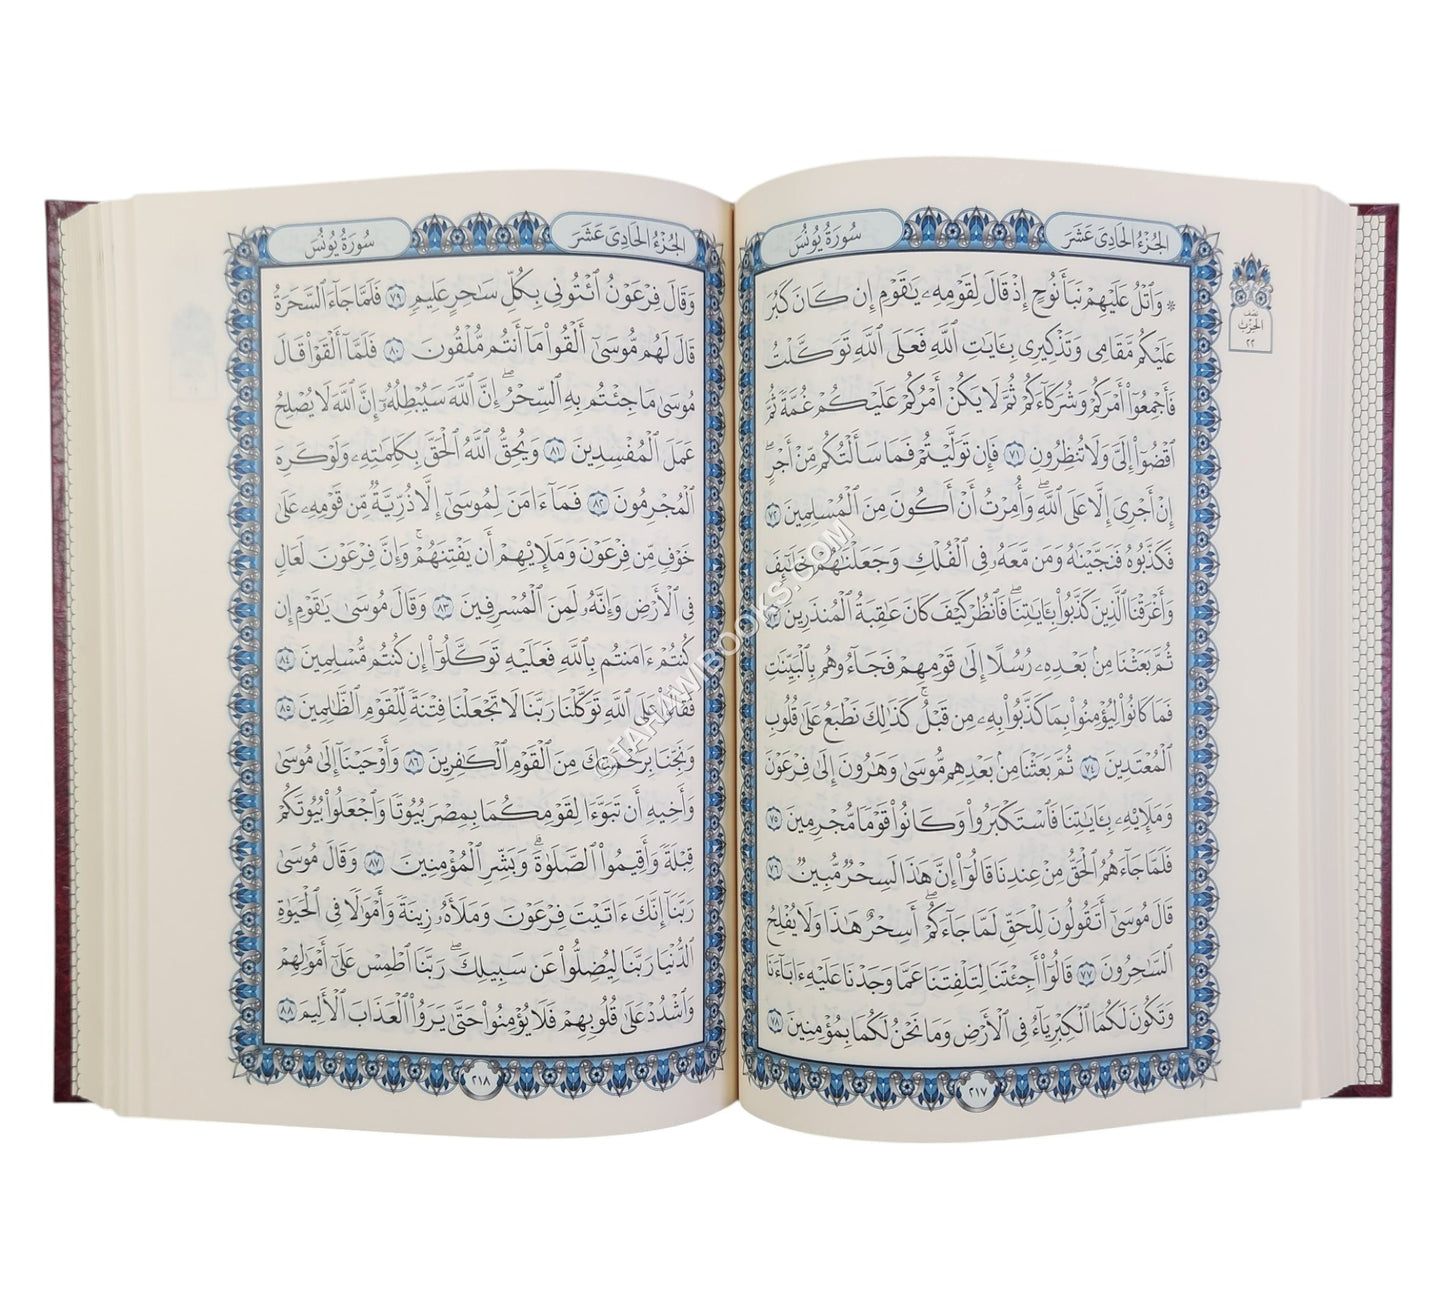 الجزء الحادي عشر
سورة يونس
۞ وَٱتۡلُ عَلَيۡهِمۡ نَبَأَ نُوحٍ إِذۡ قَالَ لِقَوۡمِهِۦ يَٰقَوۡمِ إِن كَانَ كَبُرَ
عَلَيۡكُم مَّقَامِي وَتَذۡكِيرِي بِـَٔايَٰتِ ٱللَّهِ فَعَلَى ٱللَّهِ تَوَكَّلۡتُ
فَأَجۡمِعُوٓاْ أَمۡرَكُمۡ وَشُرَكَآءَكُمۡ ثُمَّ لَا يَكُنۡ أَمۡرُكُمۡ عَلَيۡكُمۡ غُمَّةٗ ثُمَّ
ٱقۡضُوٓاْ إِلَيَّ وَلَا تُنظِرُونِ ٧١ فَإِن تَوَلَّيۡتُمۡ فَمَا سَأَلۡتُكُم مِّنۡ أَجۡرٍۖ
إِنۡ أَجۡرِيَ إِلَّا عَلَى ٱللَّهِۖ وَأُمِرۡتُ أَنۡ أَكُونَ مِنَ ٱلۡمُسۡلِمِينَ ٧٢
فَكَذَّبُوهُ فَنَجَّيۡنَٰهُ وَمَن مَّعَهُۥ فِي ٱلۡفُلۡكِ وَجَعَلۡنَٰهُمۡ خَلَٰٓئِفَ
وَأَغۡرَقۡنَا ٱلَّذِينَ كَذَّبُواْ بِـَٔايَٰتِنَاۖ فَٱنظُرۡ كَيۡفَ كَانَ عَٰقِبَةُ ٱلۡمُنذَرِينَ ٧٣
ثُمَّ بَعَثۡنَا مِنۢ بَعۡدِهِۦ رُسُلًا إِلَىٰ قَوۡمِهِمۡ فَجَآءُوهُم بِٱلۡبَيِّنَٰتِ
فَمَا كَانُواْ لِيُؤۡمِنُواْ بِمَا كَذَّبُواْ بِهِۦ مِن قَبۡلُۚ كَذَٰلِكَ نَطۡبَعُ عَلَىٰ قُلُوبِ
ٱلۡمُعۡتَدِينَ ٧٤ ثُمَّ بَعَثۡنَا مِنۢ بَعۡدِهِم مُّوسَىٰ وَهَٰرُونَ إِلَىٰ فِرۡعَوۡنَ
وَمَلَإِيْهِۦ بِـَٔايَٰتِنَا فَٱسۡتَكۡبَرُواْ وَكَانُواْ قَوۡمٗا مُّجۡرِمِينَ ٧٥
فَلَمَّا جَآءَهُمُ ٱلۡحَقُّ مِنۡ عِندِنَا قَالُوٓاْ إِنَّ هَٰذَا لَسِحۡرٞ مُّبِينٞ ٧٦
قَالَ مُوسَىٰٓ أَتَقُولُونَ لِلۡحَقِّ لَمَّا جَآءَكُمۡۖ أَسِحۡرٌ هَٰذَا وَلَا يُفۡلِحُ
ٱلسَّٰحِرُونَ ٧٧ قَالُوٓاْ أَجِئۡتَنَا لِتَلۡفِتَنَا عَمَّا وَجَدۡنَا عَلَيۡهِ ءَابَآءَنَا
وَتَكُونَ لَكُمَا ٱلۡكِبۡرِيَآءُ فِي ٱلۡأَرۡضِ وَمَا نَحۡنُ لَكُمَا بِمُؤۡمِنِينَ ٧٨
٢١٧
نصف
الحزب
٢٢
الجزء الحادي عشر
سورة يونس
وَقَالَ فِرۡعَوۡنُ ٱئۡتُونِي بِكُلِّ سَٰحِرٍ عَلِيمٖ ٧٩ فَلَمَّا جَآءَ ٱلسَّحَرَةُ
قَالَ لَهُم مُّوسَىٰٓ أَلۡقُواْ مَآ أَنتُم مُّلۡقُونَ ٨٠ فَلَمَّآ أَلۡقَوۡاْ قَالَ
مُوسَىٰ مَا جِئۡتُم بِهِ ٱلسِّحۡرُۖ إِنَّ ٱللَّهَ سَيُبۡطِلُهُۥٓ إِنَّ ٱللَّهَ لَا يُصۡلِحُ
عَمَلَ ٱلۡمُفۡسِدِينَ ٨١ وَيُحِقُّ ٱللَّهُ ٱلۡحَقَّ بِكَلِمَٰتِهِۦ وَلَوۡ كَرِهَ
ٱلۡمُجۡرِمُونَ ٨٢ فَمَآ ءَامَنَ لِمُوسَىٰٓ إِلَّا ذُرِّيَّةٞ مِّن قَوۡمِهِۦ عَلَىٰ
خَوۡفٖ مِّن فِرۡعَوۡنَ وَمَلَإِيْهِمۡ أَن يَفۡتِنَهُمۡۚ وَإِنَّ فِرۡعَوۡنَ لَعَالٖ
فِي ٱلۡأَرۡضِ وَإِنَّهُۥ لَمِنَ ٱلۡمُسۡرِفِينَ ٨٣ وَقَالَ مُوسَىٰ يَٰقَوۡمِ إِن
كُنتُمۡ ءَامَنتُم بِٱللَّهِ فَعَلَيۡهِ تَوَكَّلُوٓاْ إِن كُنتُم مُّسۡلِمِينَ ٨٤
فَقَالُواْ عَلَى ٱللَّهِ تَوَكَّلۡنَا رَبَّنَا لَا تَجۡعَلۡنَا فِتۡنَةٗ لِّلۡقَوۡمِ ٱلظَّٰلِمِينَ ٨٥
وَنَجِّنَا بِرَحۡمَتِكَ مِنَ ٱلۡقَوۡمِ ٱلۡكَٰفِرِينَ ٨٦ وَأَوۡحَيۡنَآ إِلَىٰ مُوسَىٰ
وَأَخِيهِ أَن تَبَوَّءَا لِقَوۡمِكُمَا بِمِصۡرَ بُيُوتٗا وَٱجۡعَلُواْ بُيُوتَكُمۡ
قِبۡلَةٗ وَأَقِيمُواْ ٱلصَّلَوٰةَۗ وَبَشِّرِ ٱلۡمُؤۡمِنِينَ ٨٧ وَقَالَ مُوسَىٰ
رَبَّنَآ إِنَّكَ ءَاتَيۡتَ فِرۡعَوۡنَ وَمَلَأَهُۥ زِينَةٗ وَأَمۡوَٰلٗا فِي ٱلۡحَيَوٰةِ
ٱلدُّنۡيَا رَبَّنَا لِيُضِلُّواْ عَن سَبِيلِكَۖ رَبَّنَا ٱطۡمِسۡ عَلَىٰٓ أَمۡوَٰلِهِمۡ
وَٱشۡدُدۡ عَلَىٰ قُلُوبِهِمۡ فَلَا يُؤۡمِنُواْ حَتَّىٰ يَرَوُاْ ٱلۡعَذَابَ ٱلۡأَلِيمَ ٨٨
٢١٨
©TAHAWIBOOKS.COM